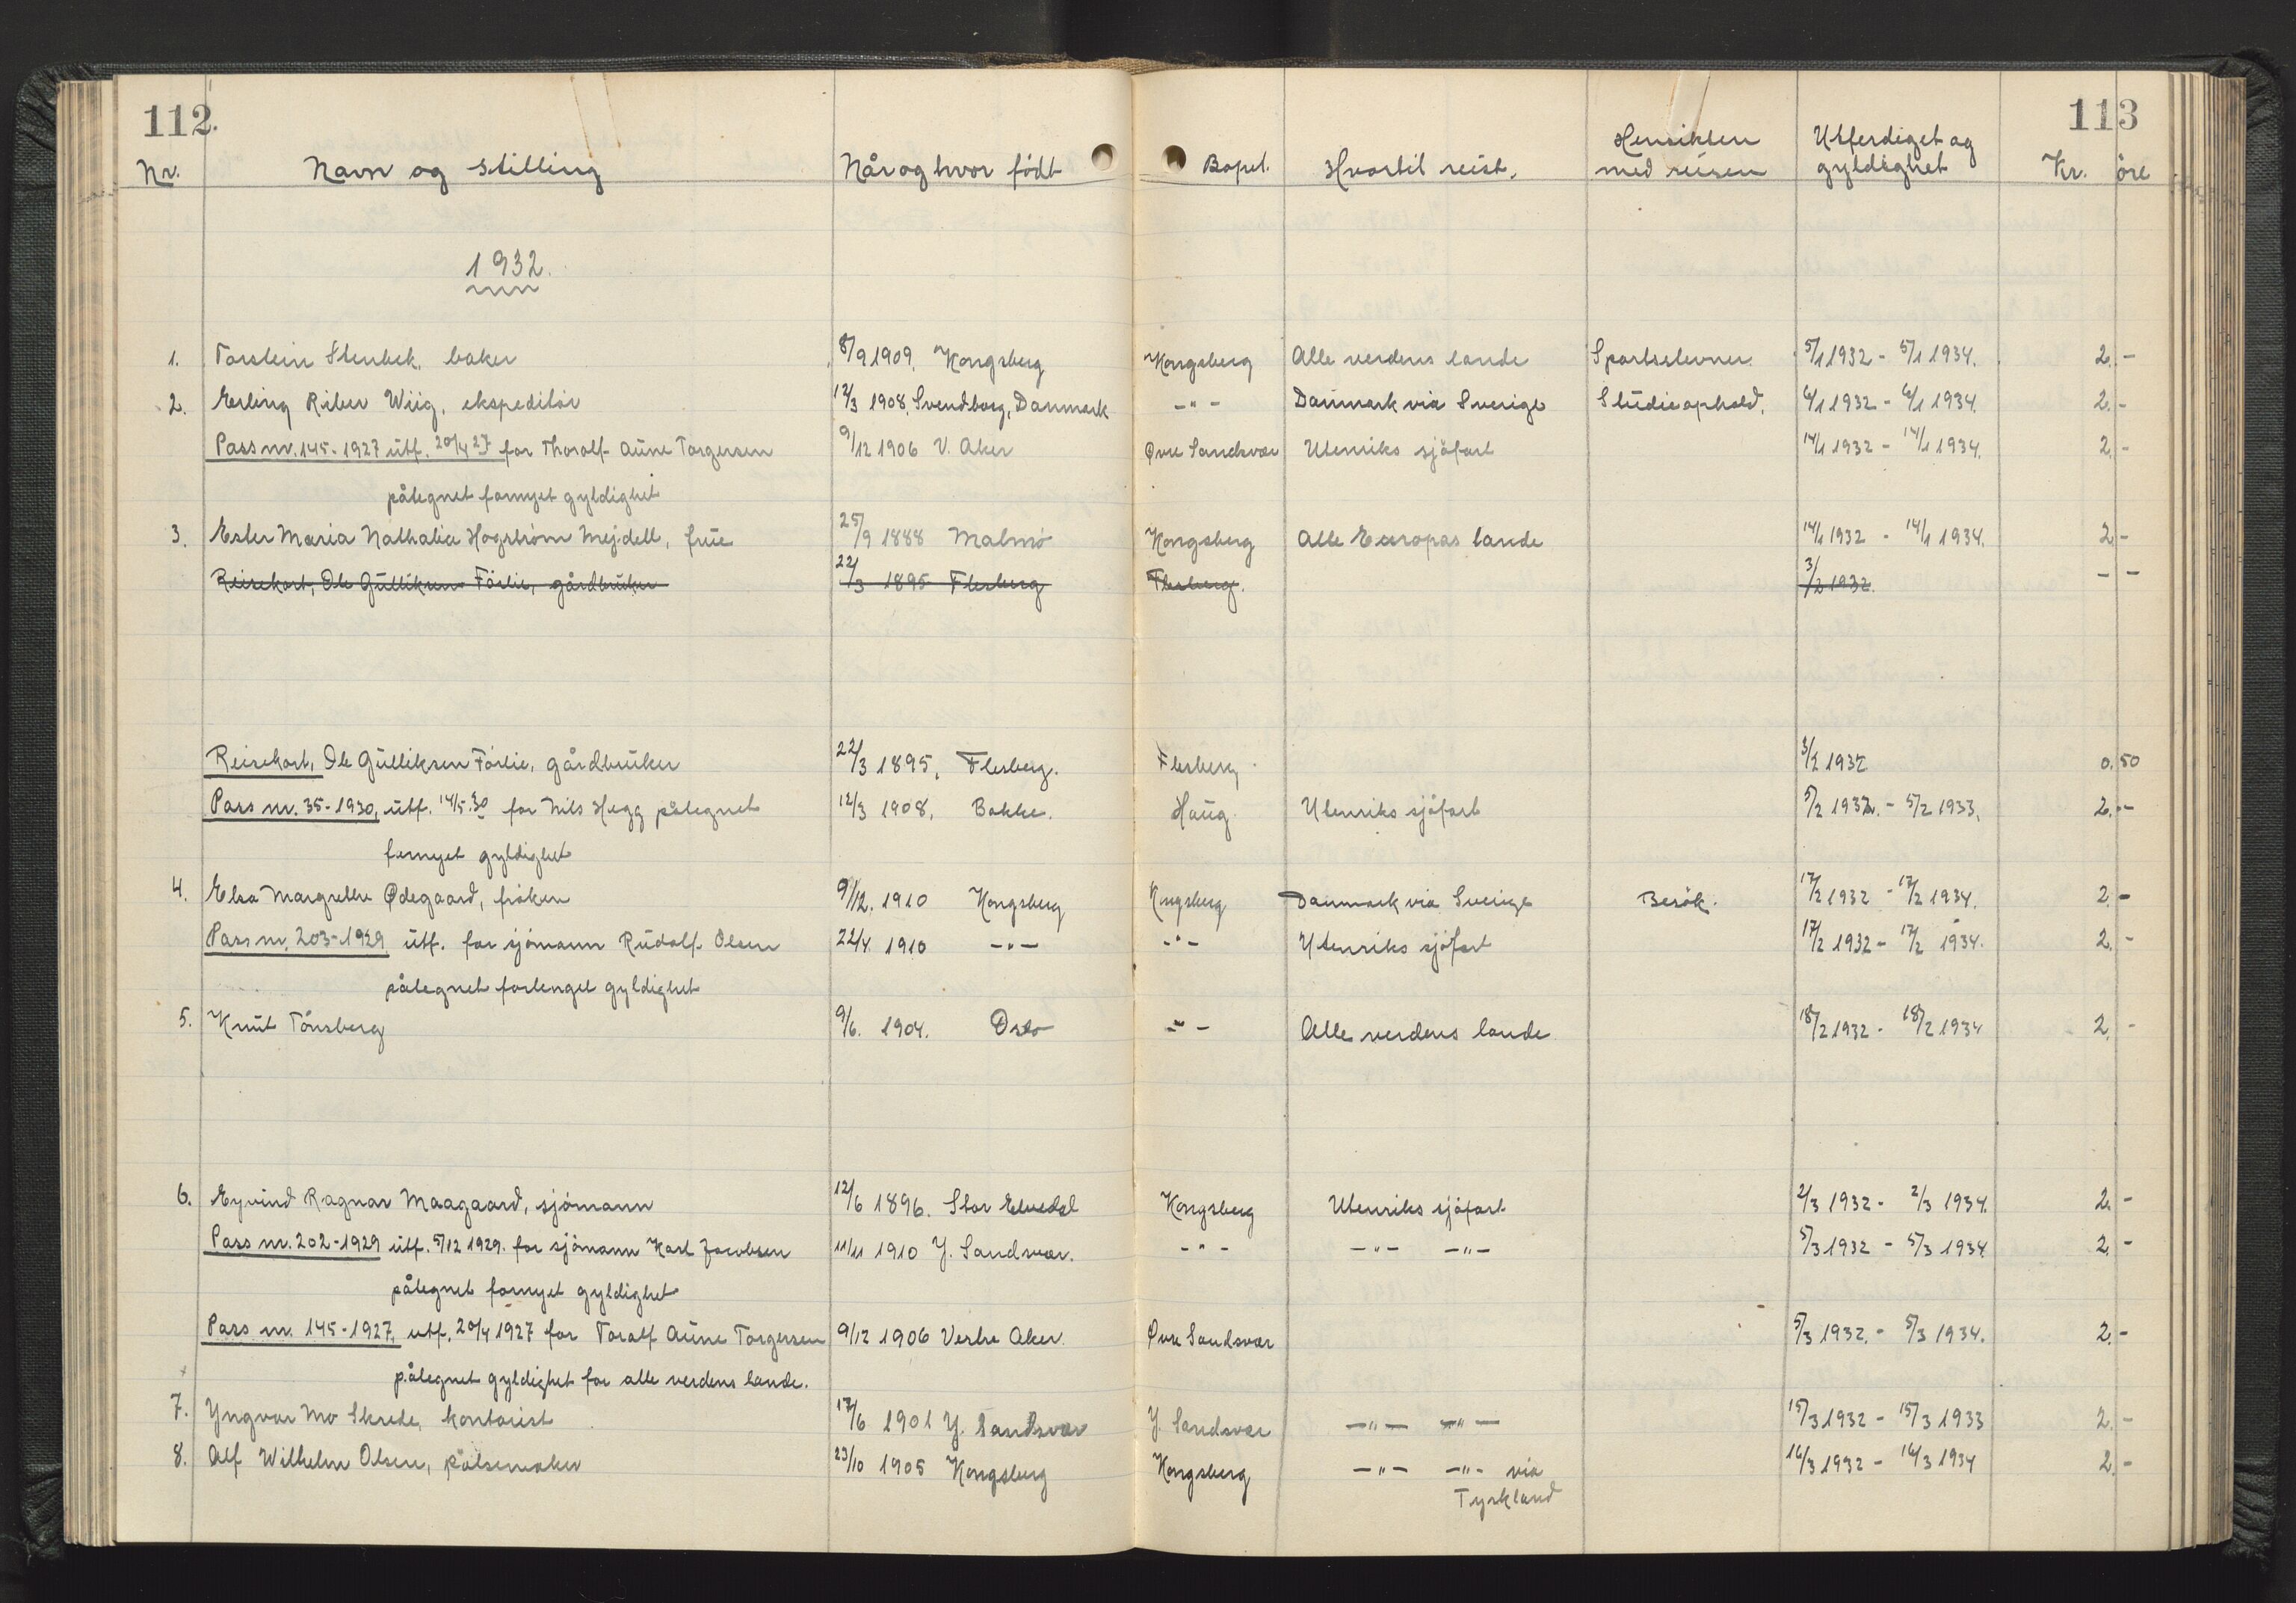 112. 113
Nr. Navn og stilling Når og hvor födt Bopel. Hvortil reist. Hensikten med reisen Utferdiget og gyldighet Kr. öre
1932.
1. Torstein Stenbek, baker 8/9 1909. Kongsberg Kongsberg Alle verdens lande Sportsstevner. 5/1 1932 - 5/1 1934. 2. -
2. Erling Riber Wiig, ekspeditör 12/3 1908, Svendborg, Danmark -"- Danmark via Sverige Studieophold. 6/1 1932 - 6/1 1934. 2. -
Pass nr. 145-1927 utf. 20/4 27 for Thoralf Aune Torgersen 9/12 1906 V. Aker Övre Sandsvær Utenriks sjöfart 14/1 1932 - 14/1 1934. 2. -
påtegnet fornyet gyldighet
3. Ester Maria Nathalia Hogström Mejdell, frue 25/9 1888 Malmö Kongsberg Alle Europas lande 14/1 1932 - 14/1 1934. 2 -
Reisekort, Ole Gulliksen Förlie, gårdbruker 22/3 1895 Flesberg Flesberg. 3/2 1932. - -
Reisekort, Ole Gulliksen Förlie, gårdbruker 22/3 1895, Flesberg. Flesberg 3/2 1932 0. 50
Pass nr. 35-1930, utf. 14/5.30 for Nils Hegg påtegnet 12/3 1908, Bakke. Haug. Utenriks sjöfart 5/2 1932. - 5/2 1933. 2. -
fornyet gyldighet
4. Elsa Margrethe Ødegaard, fröken 9/12. 1910 Kongsberg Kongsberg Danmark via Sverige Besök. 17/2 1932 - 17/2 1934. 2. -
Pass nr. 203-1929 utf. for sjömann Rudolf Olsen 22/4. 1910 -"- -"- Utenriks sjöfart 17/2 1932 - 17/2 1934. 2. -
påtegnet forlenget gyldighet
5. Knut Tönsberg 9/6. 1904. Oslo -"- Alle verdens lande 18/2 1932 - 18/2 1934 2. -
6. Eyvind Ragnar Maagaard, sjömann 12/6 1896. Stor Elvedal Kongsberg Utenriks sjöfart 2/3 1932 - 2/3 1934. 2. -
Pass nr. 202-1929 utf. 5/12 1929. for sjömann Karl Jacobsen 11/11 1910 Y. Sandsvær. -"- -"- -"- 5/3 1932 - 5/3 1934 2. -
påtegnet fornyet gyldighet
Pass nr. 145-1927, utf. 20/4 1927 for Toralf Aune Torgersen 9/12 1906 Vestre Aker. Övre Sandsvær 5/3 1932. - 5/3 1934. 2. -
påtegnet gyldighet for alle verdens lande.
7. Yngvar Mo Skrede, kontorist 17/6 1901 Y. Sandsvær Y. Sandsvær -"- -"- 15/3 1932 - 15/3 1933 2. -
8. Alf Wilhelm Olsen, pölsemaker 23/10 1905 Kongsberg Kongsberg -"- -"- via 16/3 1932 - 16/3 1934 2. -
Tyrkland